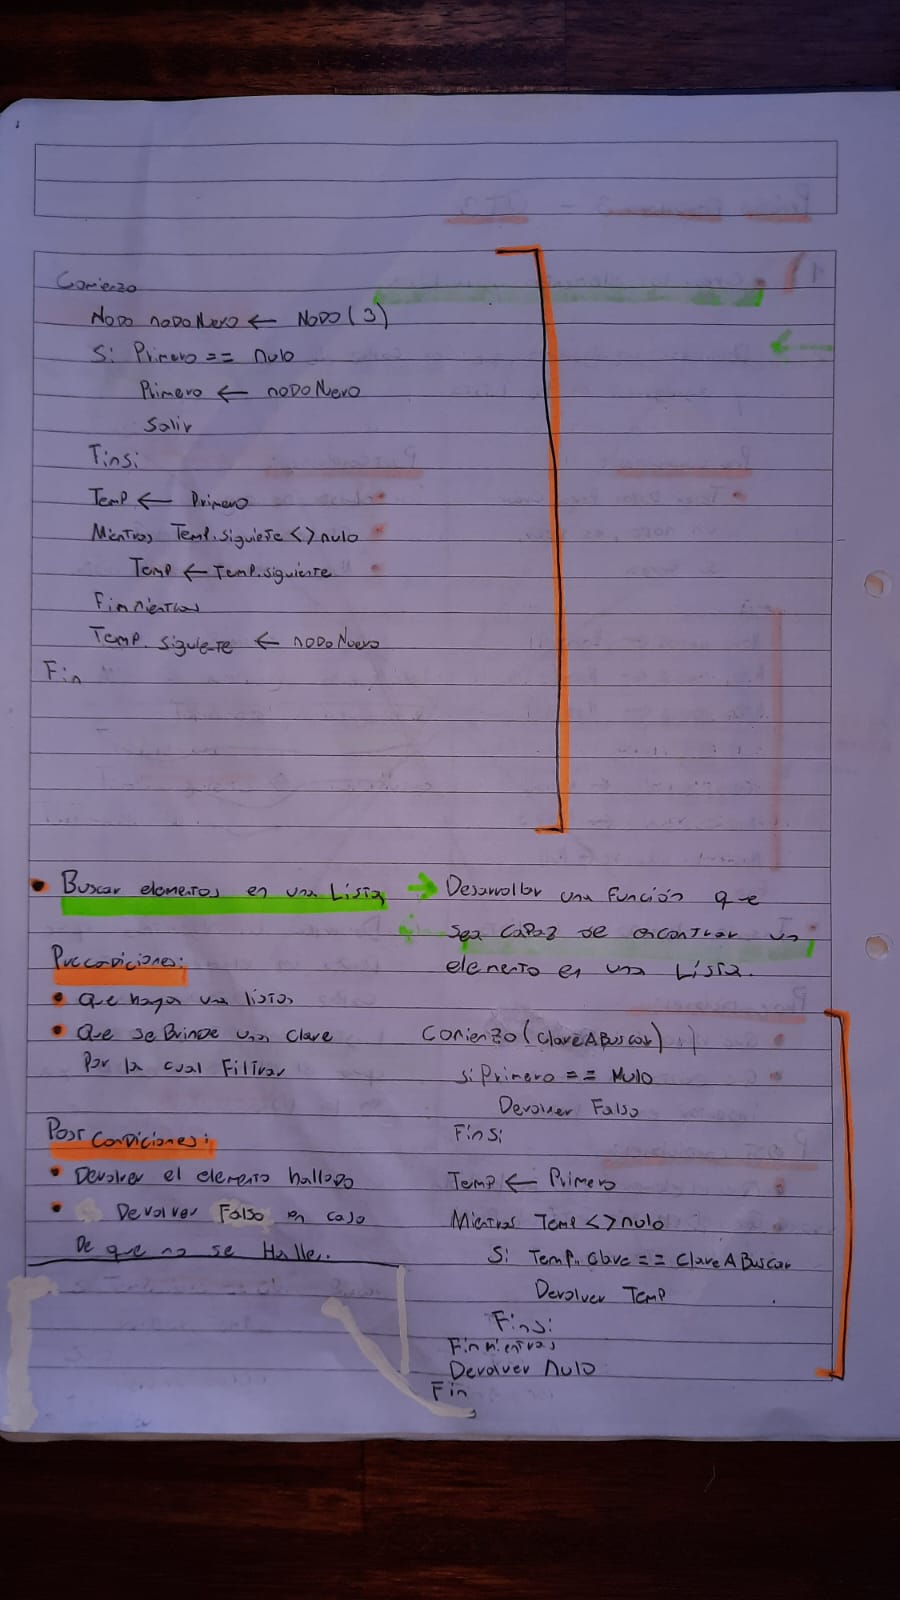 Comienzo
Nodo nodoNuevo ← Nodo (3)
Si Primero == nulo
Primero ← nodoNuevo
Salir
Finsi
Temp ← Primero
Mientras Temp.siguiete <> nulo
Temp ← Temp.siguiente
Finmientras
Temp.siguiete ← nodoNuevo
Fin
• Buscar elementos en una Lista → Desarrollar una función que
sea capaz de encontrar un
elemento en una Lista.
Precondiciones:
• Que haya una lista
• Que se Brinde una clave
Por la cual Filtrar
Post condiciones:
• Devolver el elemento hallado
• Devolver Falso en caso
De que no se Halle.
Comienzo (ClaveABuscar)
si Primero == Nulo
Devolver Falso
Finsi
Temp ← Primero
Mientras Temp <> nulo
Si Temp.Clave == ClaveABuscar
Devolver Temp
Finsi
Finmientras
Devolver nulo
Fin